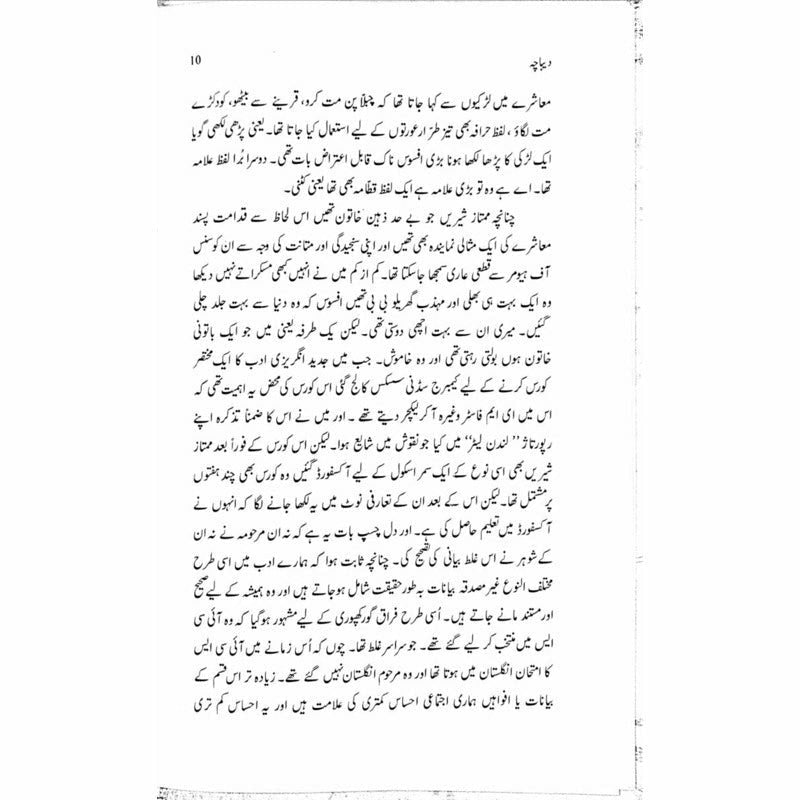 دیباچہ
10
معاشرے میں لڑکیوں سے کہا جاتا تھا کہ چبلّا پن مت کرو، قرینے سے بیٹھو، کودکڑے
مت لگاؤ ، لفظ حرافہ بھی تیز طرّار عورتوں کے لیے استعمال کیا جاتا تھا۔ یعنی پڑھی لکھی گویا
ایک لڑکی کا پڑھا لکھا ہونا بڑی افسوس ناک قابل اعتراض بات تھی۔ دوسرا بُرا لفظ علامہ
تھا۔ اے ہے وہ تو بڑی علامہ ہے ایک لفظ قطّامہ بھی تھا یعنی کٹنی۔
چنانچہ ممتاز شیریں جو بے حد ذہین خاتون تھیں اس لحاظ سے قدامت پسند
معاشرے کی ایک مثالی نمایندہ بھی تھیں اور اپنی سنجیدگی اور متانت کی وجہ سے ان کو سنس
آف ہیومر سے قطعی عاری سمجھا جاسکتا تھا۔ کم از کم میں نے انہیں کبھی مسکراتے نہیں دیکھا
وہ ایک بہت ہی بھلی اور مہذب گھریلو بی بی تھیں افسوس کہ وہ دنیا سے بہت جلد چلی
گئیں۔ میری ان سے بہت اچھی دوستی تھی۔ لیکن یک طرفہ یعنی میں جو ایک باتونی
خاتون ہوں بولتی رہتی تھی اور وہ خاموش۔ جب میں جدید انگریزی ادب کا ایک مختصر
کورس کرنے کے لیے کیمبرج سڈنی سسکس کالج گئی اس کورس کی محض یہ اہمیت تھی کہ
اس میں ای ایم فاسٹر وغیرہ آکر لیکچر دیتے تھے ۔ اور میں نے اس کا ضمناً تذکرہ اپنے
رپورتاژ ’’ لندن لیٹر‘‘ میں کیا جو نقوش میں شایع ہوا۔ لیکن اس کورس کے فوراً بعد ممتاز
شیریں بھی اسی نوع کے ایک سمر اسکول کے لیے آکسفورڈ گئیں وہ کورس بھی چند ہفتوں
پر مشتمل تھا۔ لیکن اس کے بعد ان کے تعارفی نوٹ میں یہ لکھا جانے لگا کہ انہوں نے
آکسفورڈ میں تعلیم حاصل کی ہے۔ اور دل چسپ بات یہ ہے کہ نہ ان مرحومہ نے نہ ان
کے شوہر نے اس غلط بیانی کی تصحیح کی۔ چنانچہ ثابت ہوا کہ ہمارے ادب میں اسی طرح
مختلف النوع غیر مصدقہ بیانات بہ طور حقیقت شامل ہوجاتے ہیں اور وہ ہمیشہ کے لیے صحیح
اور مستند مانے جاتے ہیں۔ اُسی طرح فراق گورکھپوری کے لیے مشہور ہوگیا کہ وہ آئی سی
ایس میں منتخب کر لیے گئے تھے۔ جو سراسر غلط تھا۔ چوں کہ اُس زمانے میں آئی سی ایس
کا امتحان انگلستان میں ہوتا تھا اور وہ مرحوم انگلستان نہیں گئے تھے۔ زیادہ تر اس قسم کے
بیانات یا افواہیں ہماری اجتماعی احساس کمتری کی علامت ہیں اور یہ احساس کم تری